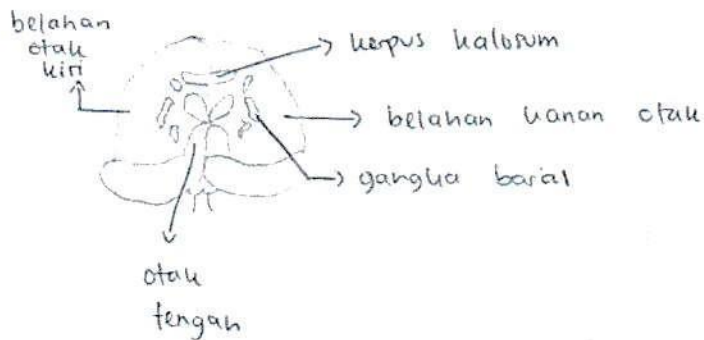 belahan
otak
kiri
korpus kalosum
belahan kanan otak
ganglia basal
otak
tengah